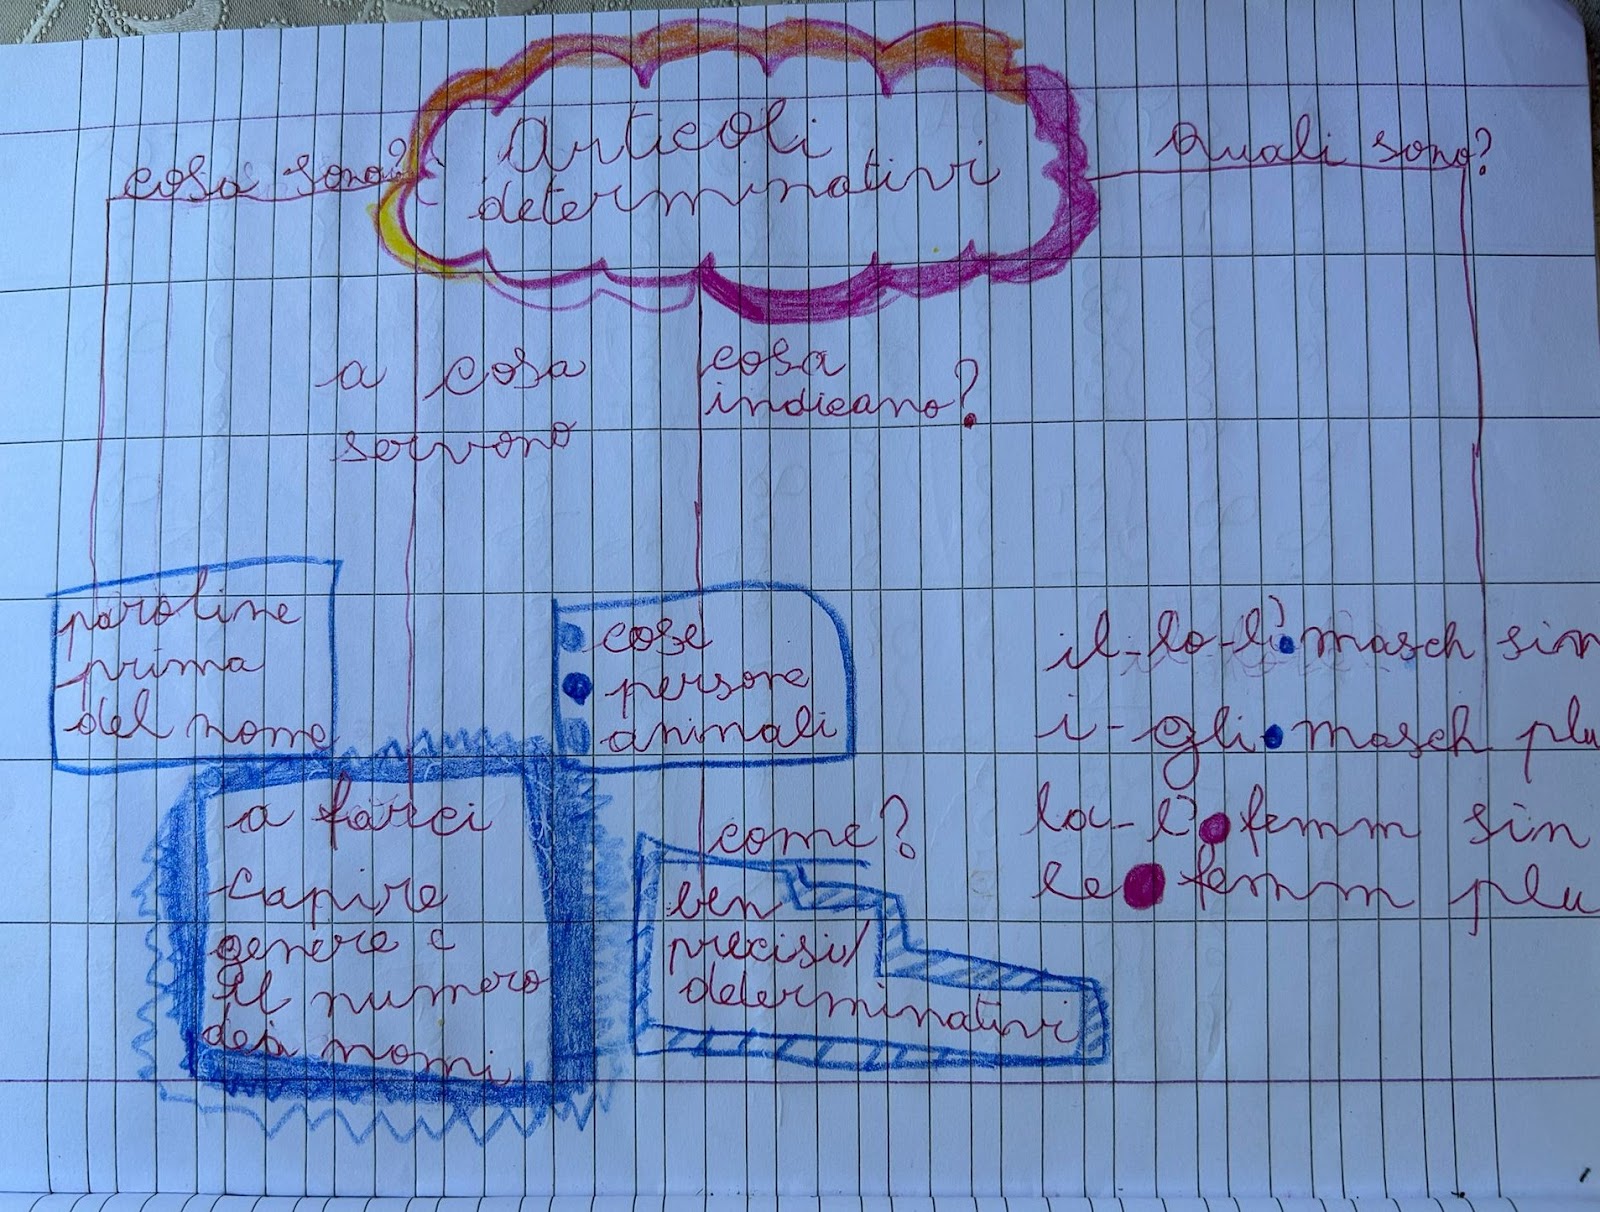 Articoli
determinativi
cosa sono?
Quali sono?
a cosa
servono
cosa
indicano?
paroline
prima
del nome
cose
persone
animali
a farci
capire
genere e
il numero
dei nomi
come?
ben
precisi/
determinativi
il-lo-l' masch sin
i-gli masch plu
la-l' femm sin
le femm plu